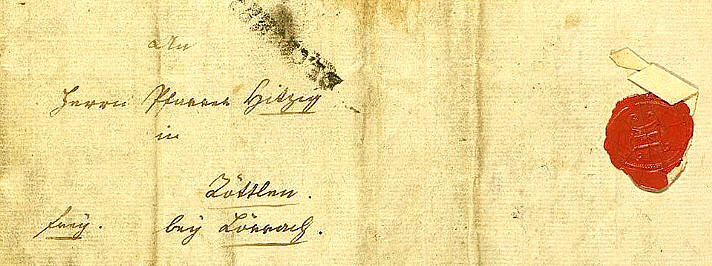 An
Herrn Pfarrer Hitzig
in
Röttlen.
frey. bey Lörrach.